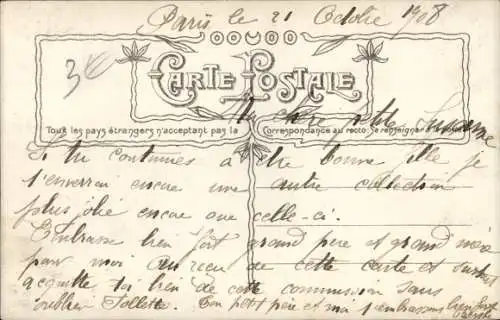 Paris le 21 Octobre 1908
3€
CARTE POSTALE
Ma chère petite Suzanne
Tous les pays étrangers n'acceptant pas la Correspondance au recto, se renseigner
Si tu continues à être bonne fille je
t'enverrai encore une autre collection
plus jolie encore que celle-ci.
Embrasse bien fort grand père et grand mère
pour moi au reçu de cette carte et surtout
acquitte toi bien de cette commission sans
oublier Follette. Ton petit père et moi t'embrassons bien fort